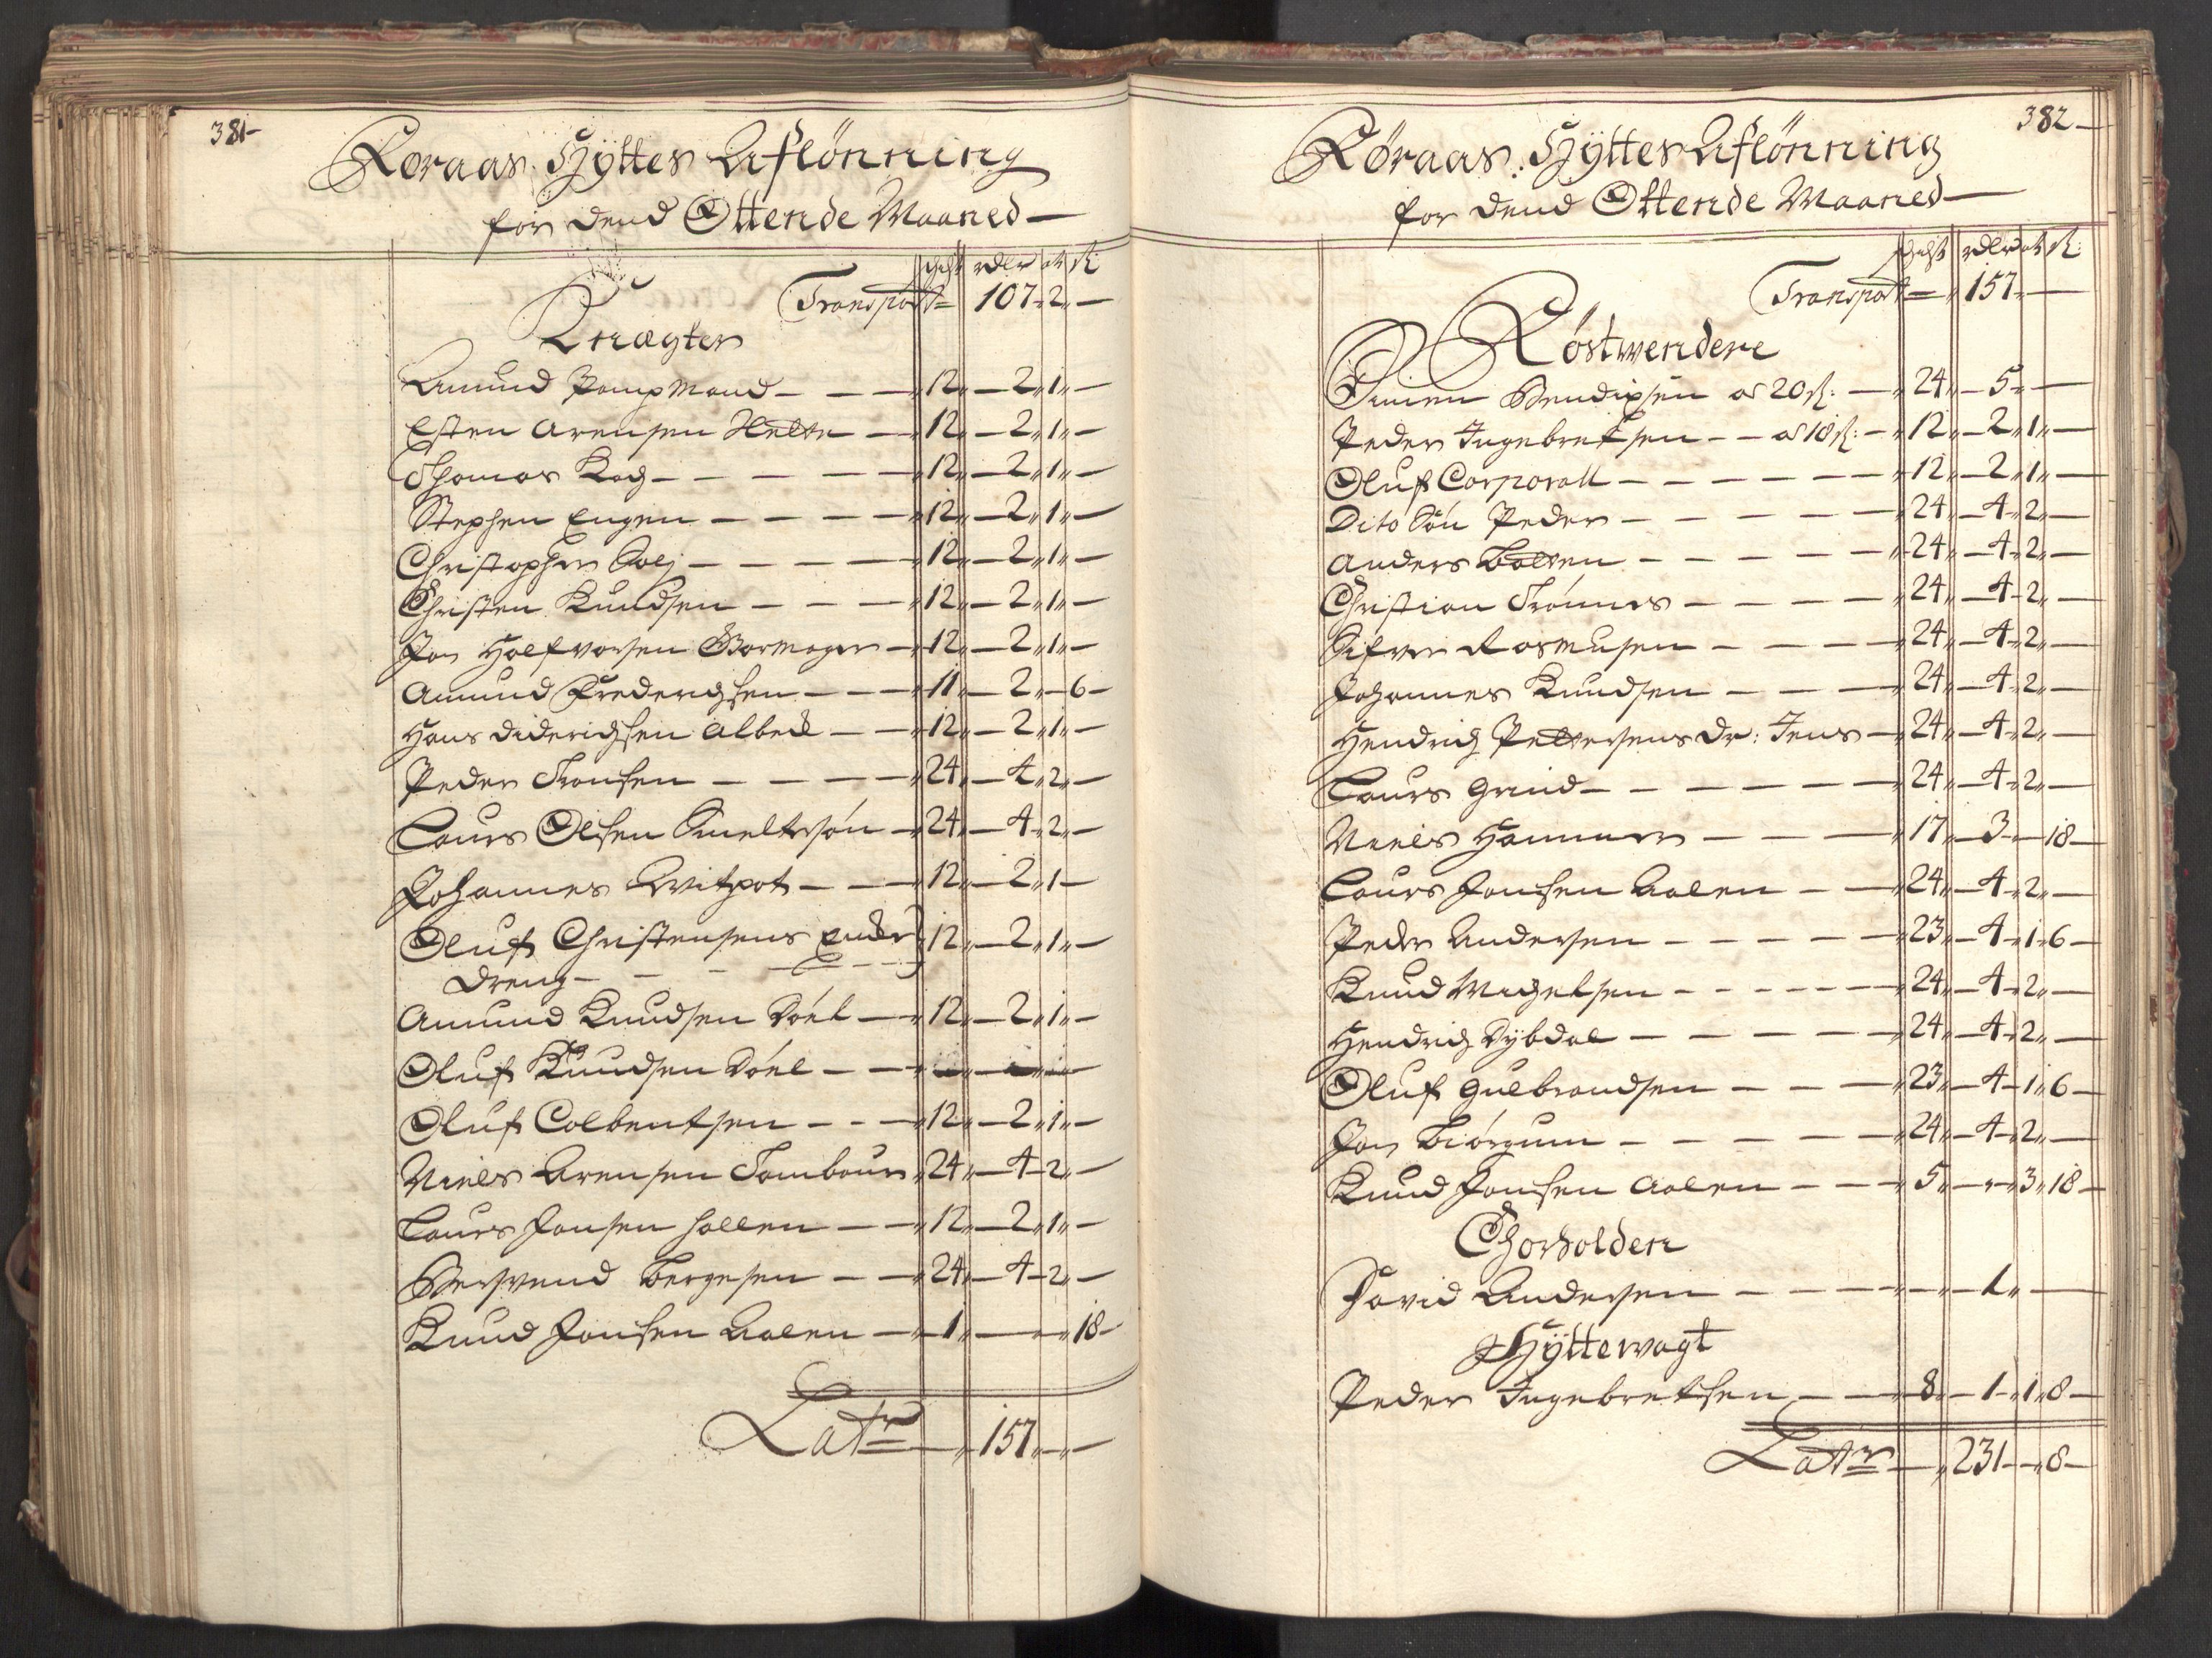 381-
Røraas Hÿttes Aflønning
for dend Ottende Maaned—
schst rdlr ort s:
Transport= 107„2„—
Knægter
Amund Pampmand — — 12„ — 2„1„—
Esten Arensen Helte — 12„ — 2„1„—
Thomas Kag — — — — 12„ — 2„1„—
Stephen Engen — — — — 12„ — 2„1„—
Christopher — — — — 12„ — 2„1„—
Christen Knudsen — — — 12„ — 2„1„—
Jon Halfvorsen Garmager — 12„ — 2„1„—
Amund Frederichsen — — — 11„ — 2„—6—
Hans Diderichsen Albeck — — 12„ — 2„1„—
Peder Tronsen — — — — 24„ — 4„2„—
Laurs Olsen Smeltersøn — 24„ — 4„2„—
Johannes Witpot — — — 12„ — 2„1—
Oluf Christensens 12„ — 2„1„—
Dreng — — — —
Amund Knudsen Döel — 12„ — 2„1„—
Oluf Knudsen Döel — —
Oluf Colbentsen — — — 12„ — 2„1„—
Niels Arensen Tambour 24„ — 4„2„—
Laurs Jonsen Hallen — — 12„ — 2„1„—
Berswend Bergesen — — 24„ — 4„2„—
Knud Jonsen Aalen — 1„ — — „18—
Latr 157„—„—
382—
Røraas Hÿttes Aflønning
for dend Ottende Maaned—
schst rdlr ort s:
Transport= 157„—
Røstwendere
Simen Bendixsen a 20 s: — 24„ — 5„ —
Peder Ingebretsen — — a 18 s: — 12„ — 2„1„—
Oluf Corporall — — — — 12„ — 2„1„—
Dito Søn Peder — — — — 24„ — 4„2„—
Anders Bolten — — — — 24„ — 4„2„—
Christian Trønnes — — — — 24„ — 4„2„—
Sifver Rasmusen — — — — 24„ — 4„2„—
Johannes Knudsen — — — 24„ — 4„2„—
Hendrich Pettersens Dr: Jens — 24„ — 4„2„—
Laurs Grind — — — — — 24„ — 4„2„—
Niels Hammer — — — — 17„ — 3„—18—
Laurs Jonsen Aalen — — 24„ — 4„2„—
Peder Andersen — — — — 23„ — 4„1„6—
Knud Michelsen — — — — 24„ — 4„2„—
Hendrich Dÿbdal — — — — 24„ — 4„2„—
Oluf Gulbrandsen — — — 23„ — 4„1„6—
Jon Biörgum — — — — 24„ — 4„2„—
Knud Jonsen Aalen — — — 5„ — „3„18—
Chorholder
David Andersen — — — — — „ — 1„ —
Hÿttevagt
Peder Ingebretsen — — 8„ — 1„1„8—
Latr — „231—„8—